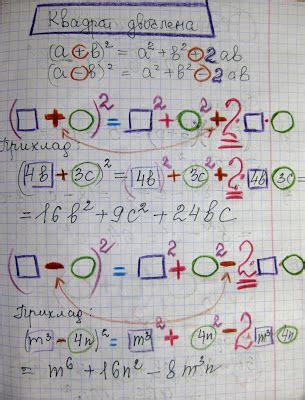 Квадрат двочлена
(a + b)² = a² + b² + 2ab
(a - b)² = a² + b² - 2ab
(□ + ○)² = □² + ○² + 2 □·○
Приклад:
(4b + 3c)² = (4b)² + 3c² + 2· 4b 3c =
= 16b² + 9c² + 24bc
(□ - ○)² = □² + ○² - 2 □·○
Приклад:
(m³ - 4n)² = m³² + 4n² - 2 m³ 4n
= m⁶ + 16n² - 8m³n